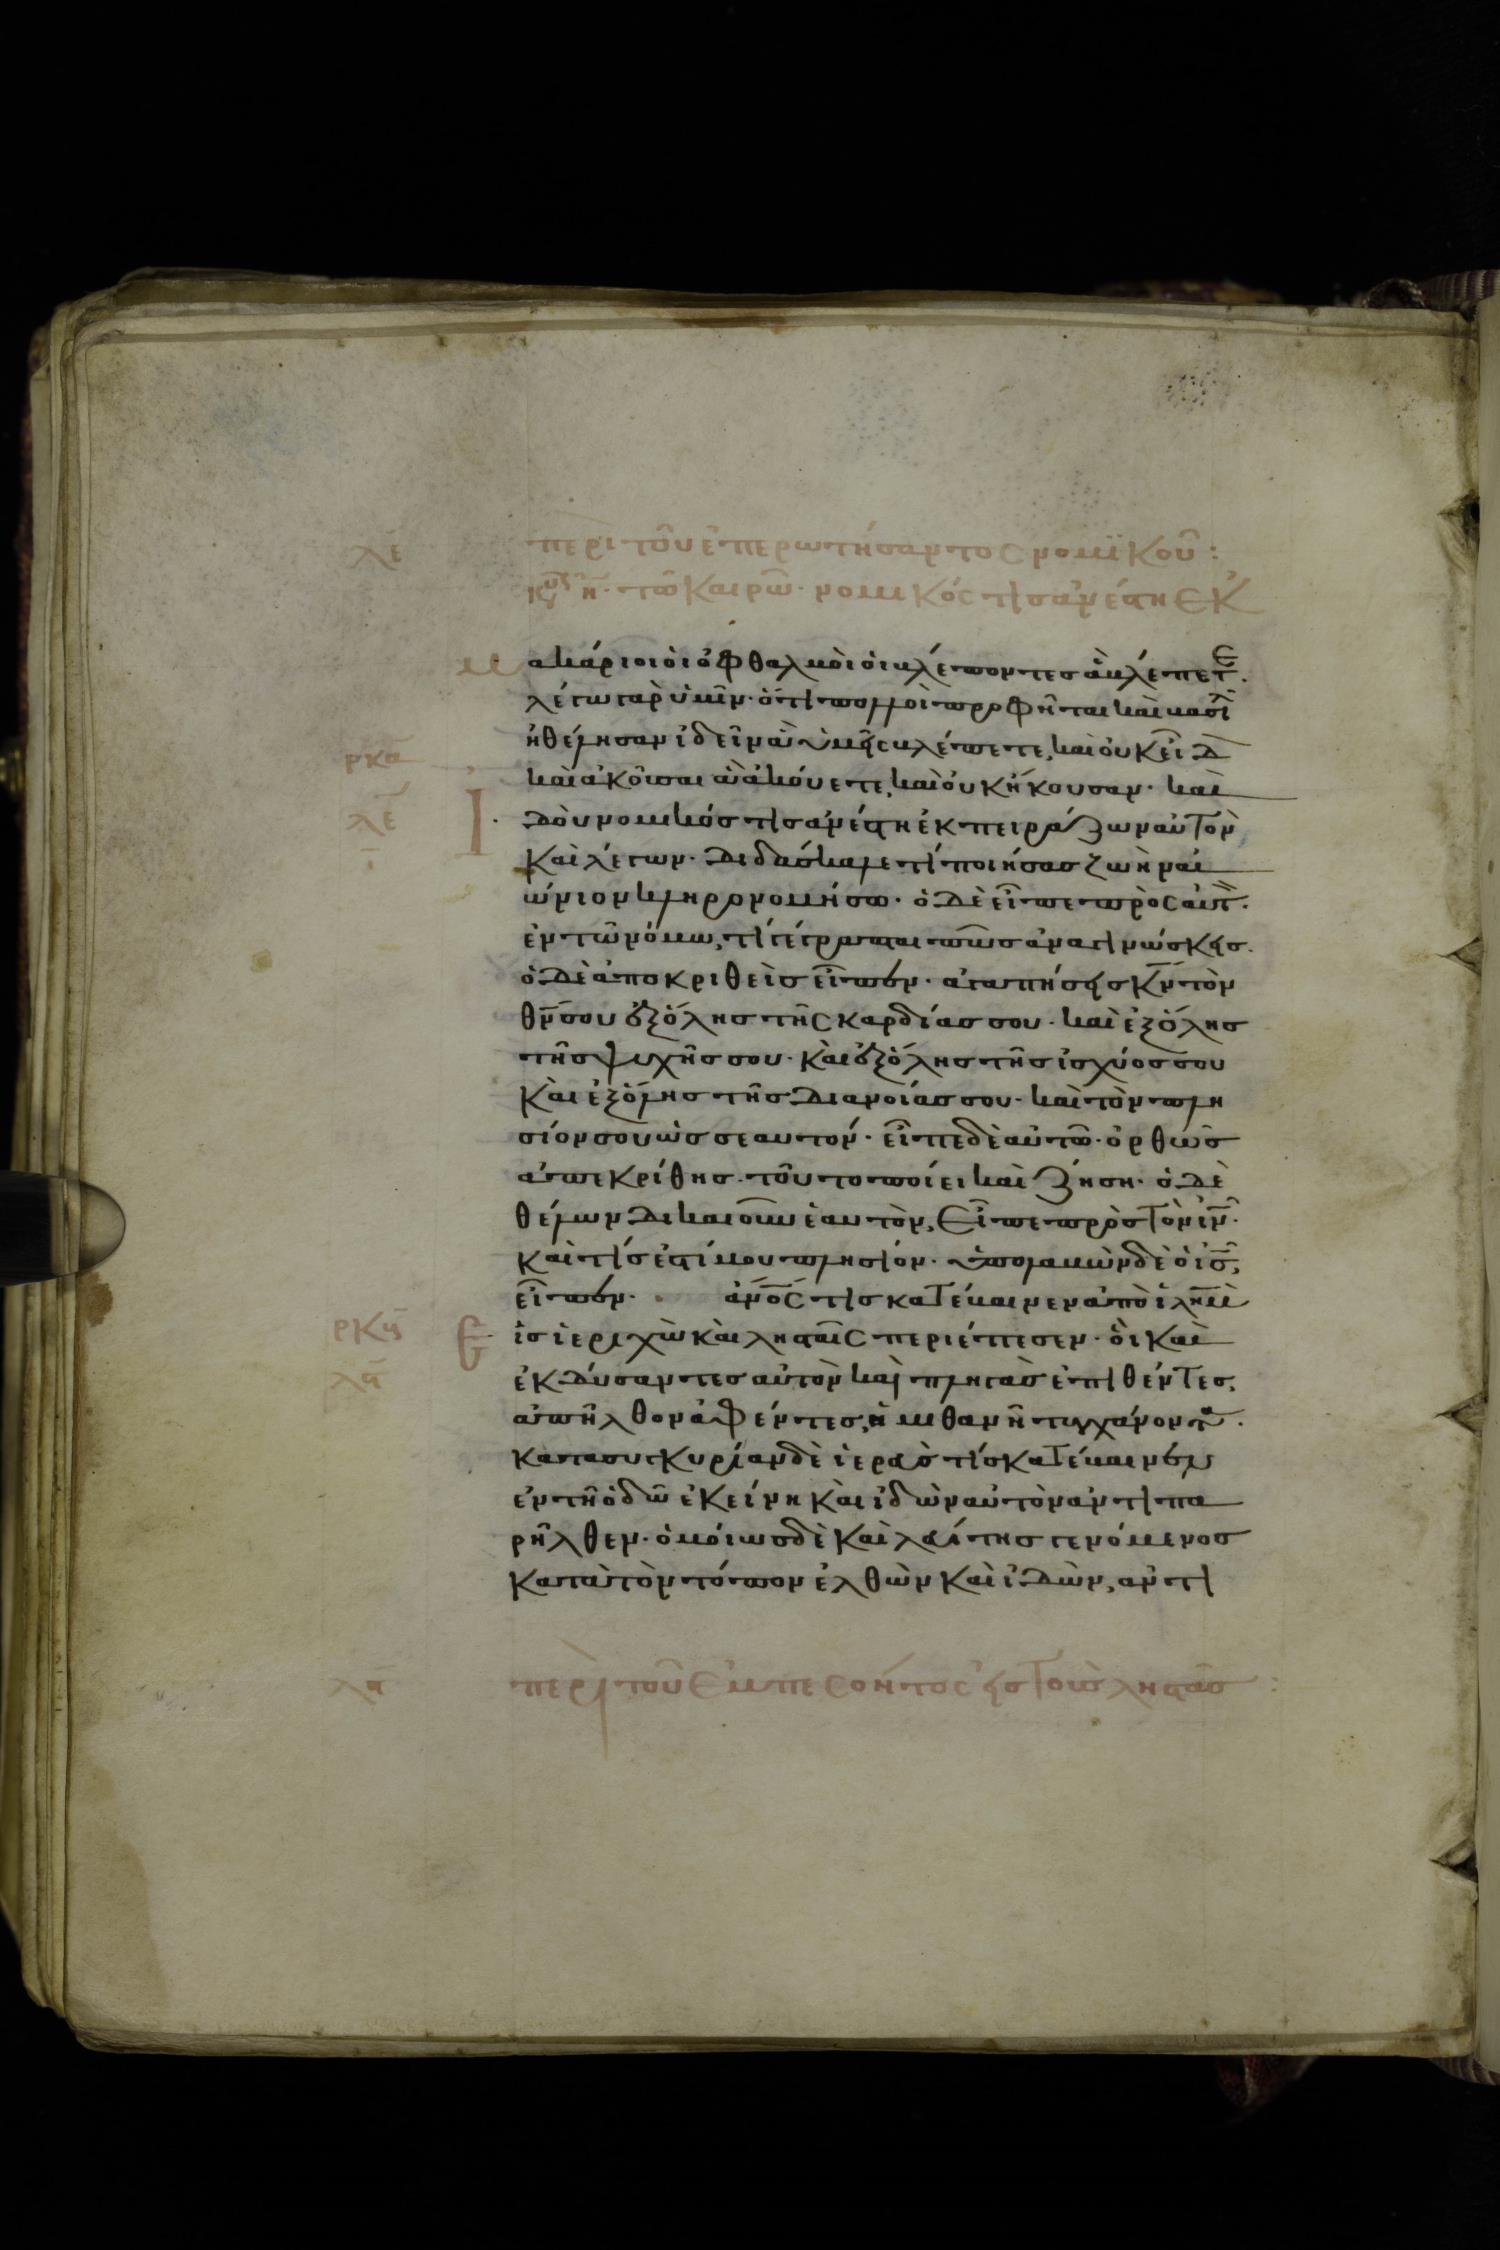 λε περὶ τοῦ ἐπερωτήσαντος νομϊκοῦ :
τῶ Καιρῶ· νομικός τις ἀνέστη ἐκ
μακάριοι ὁι ὀφθαλμὸι ὁι βλέποντες ἃ βλέπετε.
λέγω γὰρ ὑμῖν· ὅτι πολλοὶ προφῆται καὶ βασιλ
ἠθέλησαν ἰδεῖν ἃ ὑμεῖς βλέπετε, καὶ οὐκ εῖδ
ρκα καὶ ἀκοῦσαι ἃ ἀκούετε, καὶ οὐκ ἤκουσαν· καὶ
λε Ἰδοὺ νομικός τις ἀνέστη ἐκπειράζων αὐτὸν
ι καὶ λέγων· διδάσκαλε τί ποιήσας ζωὴν αἰ
ώνιον κληρονομήσω· ὁ δὲ εῖπε πρὸς αὐτ.
ἐν τῶ νόμω, τί γέγραπται πῶς ἀναγινώσκεις.
ὁ δὲ ἀποκριθεὶς εῖπεν· ἀγαπήσεις κν τὸν
θν σου ἐξ ὅλης τῆς καρδίας σου· καὶ ἐξ ὅλης
τῆς ψυχῆς σου· καὶ ἐξ ὅλης τῆς ἰσχύος σου
καὶ ἐξ ὅλης τῆς διανοίας σου· καὶ τὸν πλη
σίον σου ὡς σεαυτόν· εῖπε δὲ αὐτῶ· ὀρθῶς
ἀπεκρίθης· τοῦτο ποίει καὶ ζήση· ὁ δὲ
θέλων δικαιοῦν ἑαυτὸν, εῖπε πρὸς τὸν ιν·
καὶ τίς ἐστί μου πλησίον· ὑπολαβὼν δὲ ὁ ις,
εῖπεν· ἀνος τις κατέβαινεν ἀπὸ ἱλημ
ρκβ εἰς ἱεριχὼ καὶ λησταῖς περιέπεσεν· ὁὶ καὶ
λς ἐκδύσαντες αὐτὸν καὶ πληγὰς ἐπιθέντες,
ἀπῆλθον ἀφέντες, ἡμιθανῆ τυγχάνοντα.
κατὰ συγκυρίαν δὲ ἱερεὺς τίς κατέβαινεν
ἐν τῆ ὁδῶ ἐκείνη καὶ ἰδὼν αὐτὸν ἀντιπα
ρῆλθεν· ὁμοίως δὲ καὶ λευίτης γενόμενος
κατὰ τὸν τόπον ἐλθὼν καὶ ἰδὼν, ἀντι
λς περὶ τοῦ ἐμπεσόντος εἰς τοὺς ληστὰς :